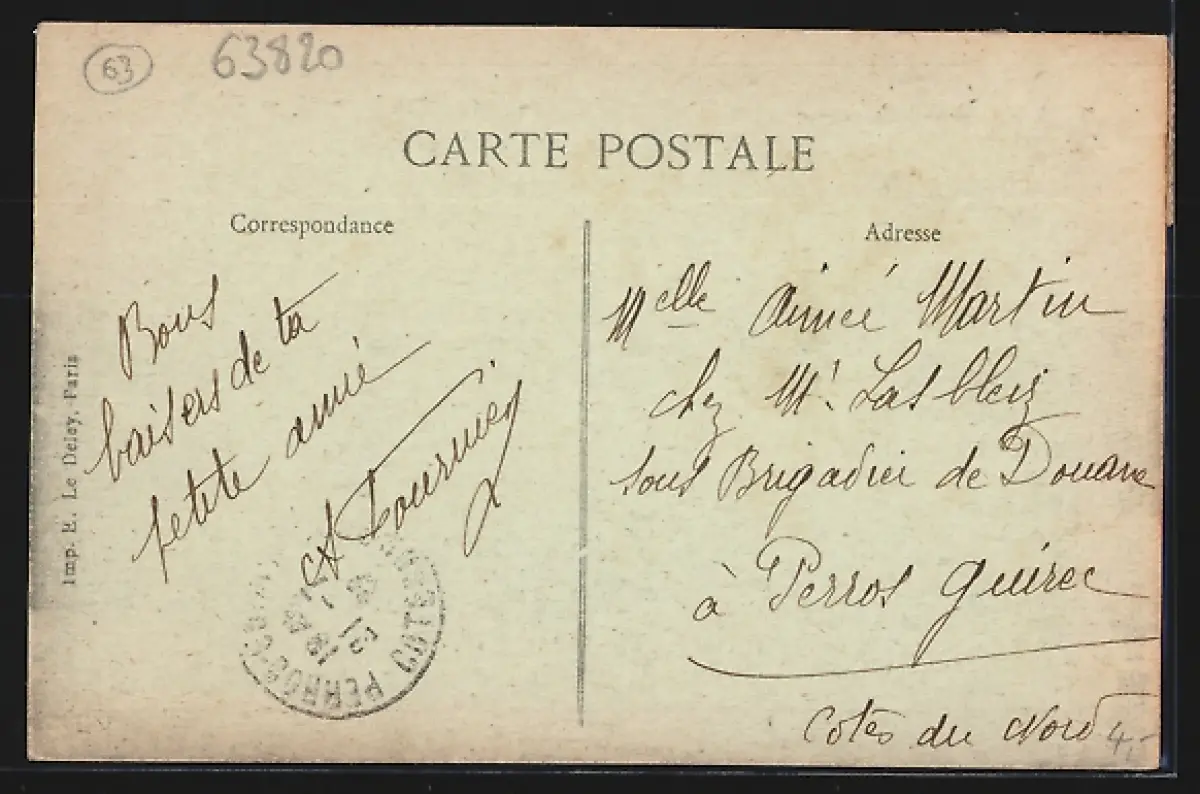 63
63820
CARTE POSTALE
Correspondance
Adresse
Bons
baisers de ta
petete amie
A Fournier
Melle Aimée Martin
chez Mr. Lasbleiz
sous Brigadier de Douane
à Perros Guirec
Cotes du Nord
4,-
Imp. E. Le Deley, Paris
PERROS-G
COTES